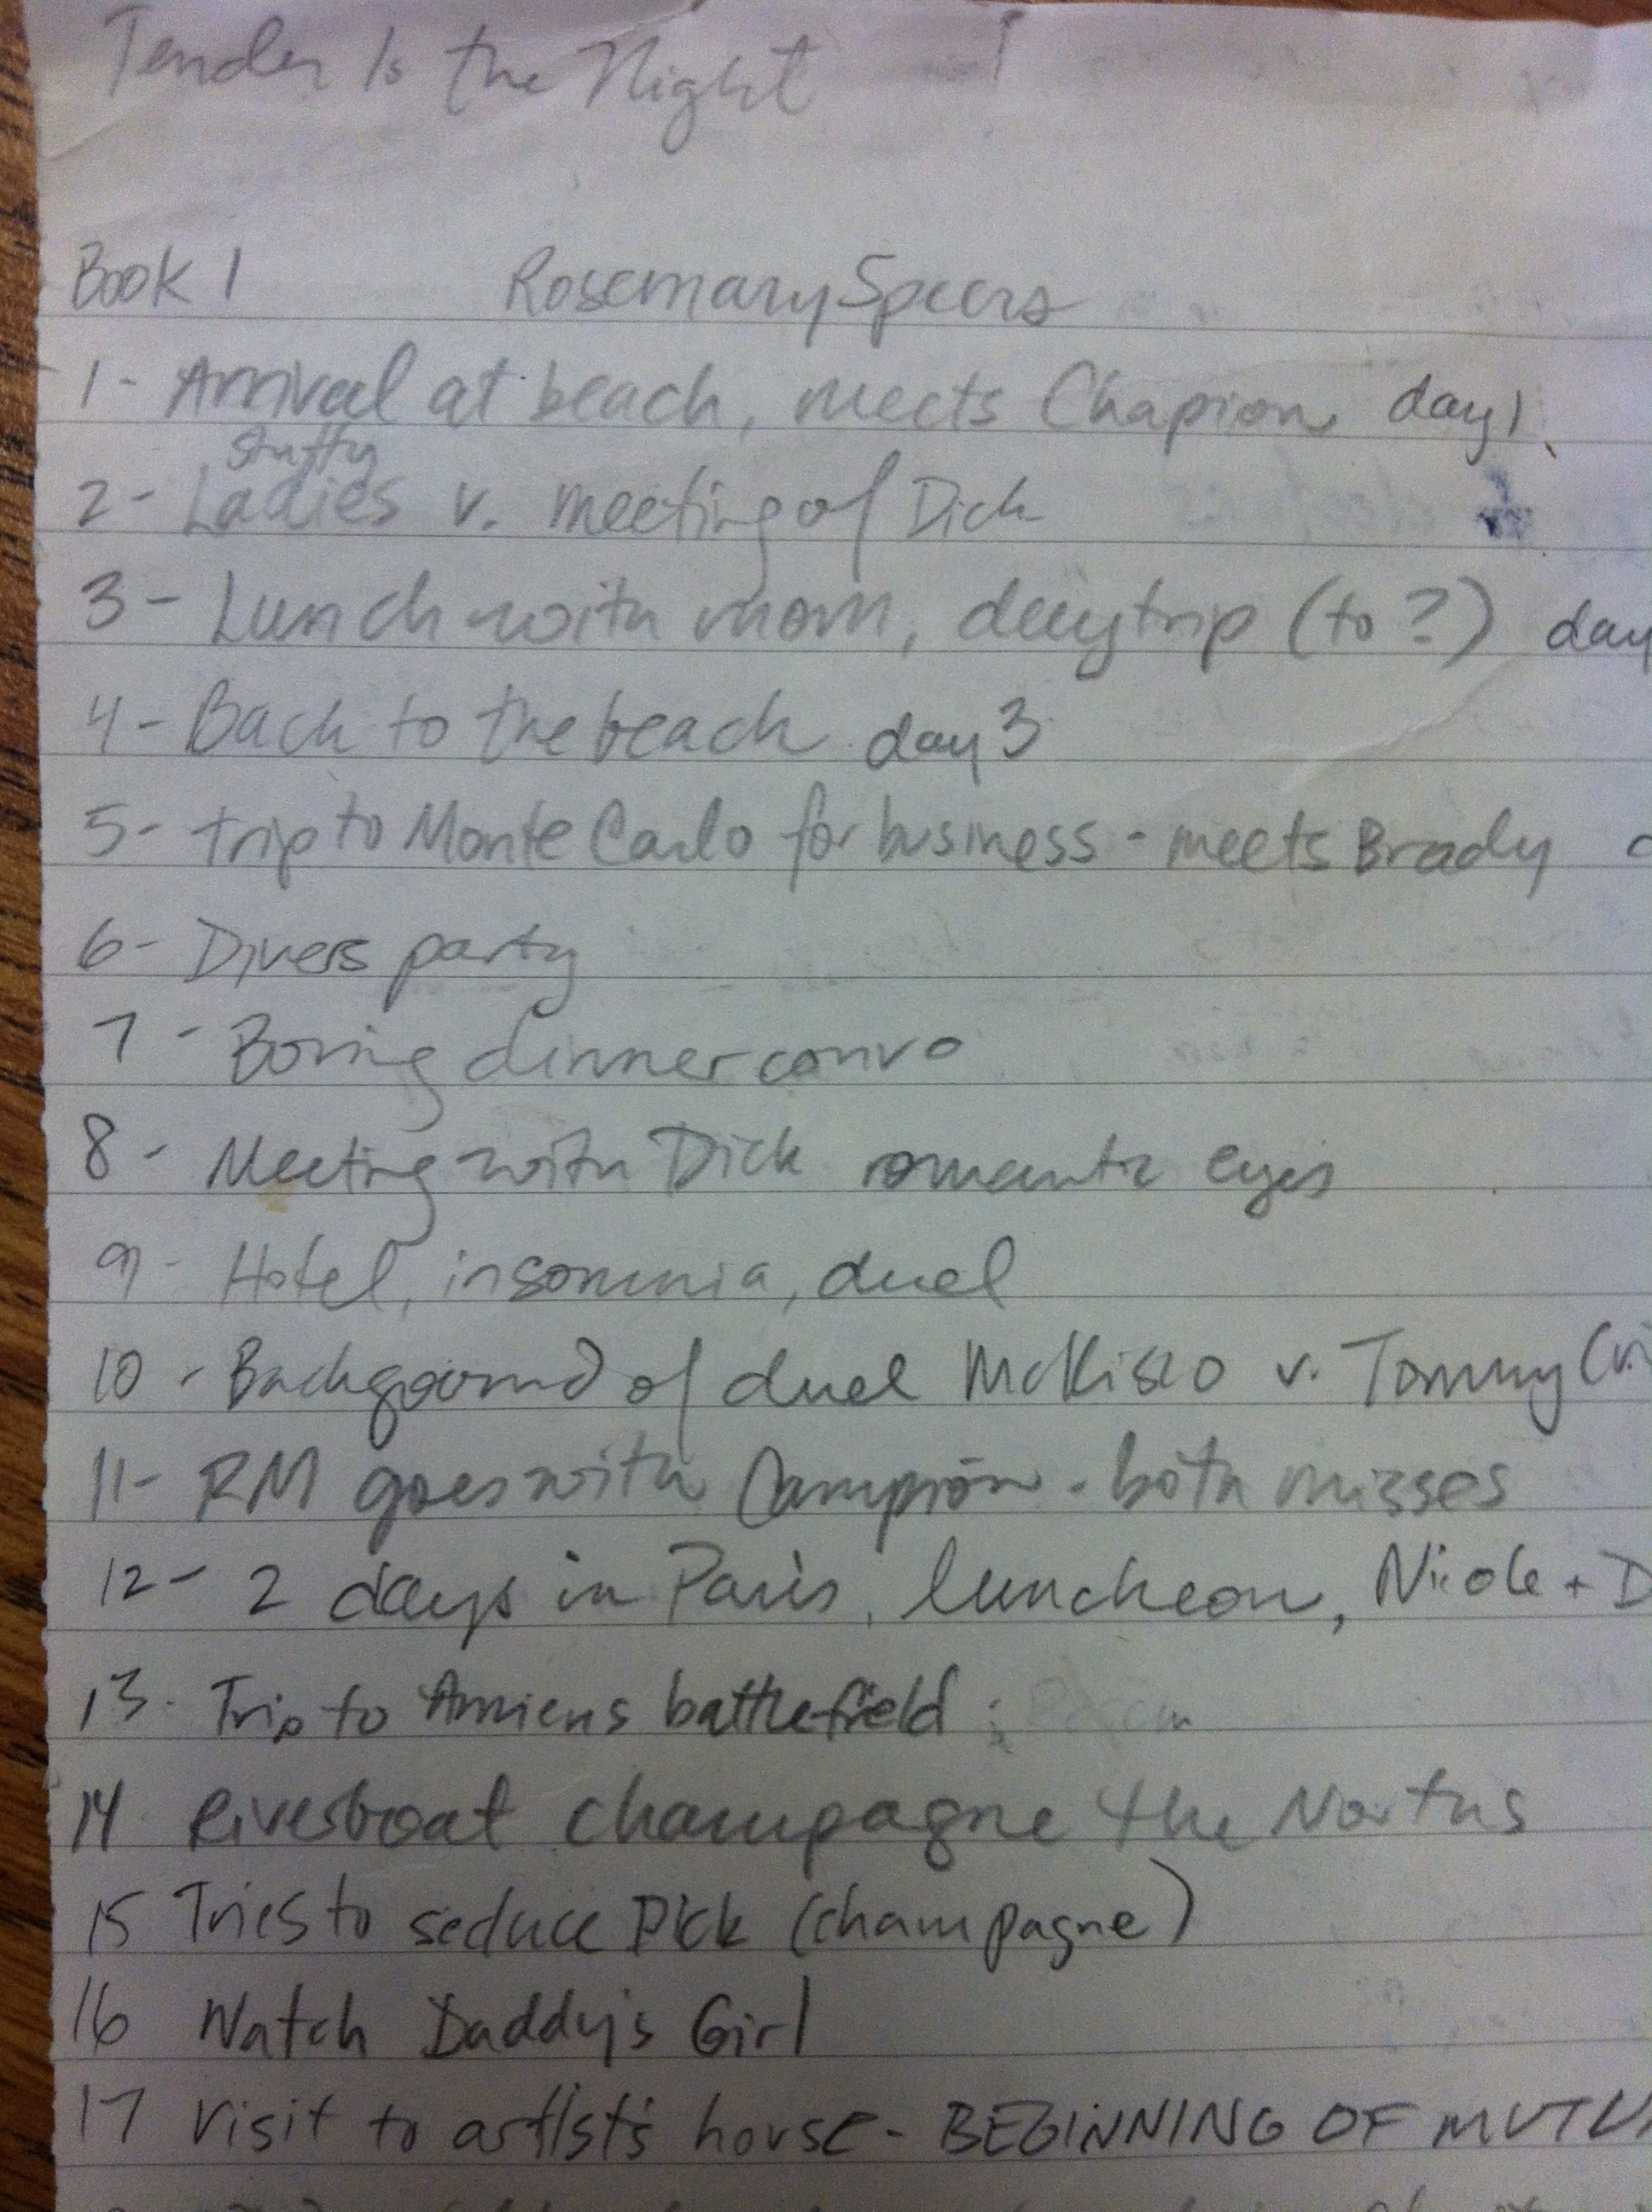 Tender Is the Night
Book 1 Rosemary Speers
1- Arrival at beach, meets Chapion day 1
stuffy
2- Ladies v. meeting of Dick
3- Lunch with mom, day trip (to?) day
4- Back to the beach day 3
5- trip to Monte Carlo for business - meets Brady
6- Divers party
7- Boring dinner convo
8- Meeting with Dick romantic eyes
9- Hotel, insomnia, duel
10- Background of duel McKisco v. Tommy
11- RM goes with Campion - both misses
12- 2 days in Paris, luncheon, Nicole + D
13- Trip to Amiens battlefield
14 Riverboat champagne the Norths
15 Tries to seduce Dick (champagne)
16 Watch Daddy's Girl
17 Visit to artist's house - BEGINNING OF MUTU